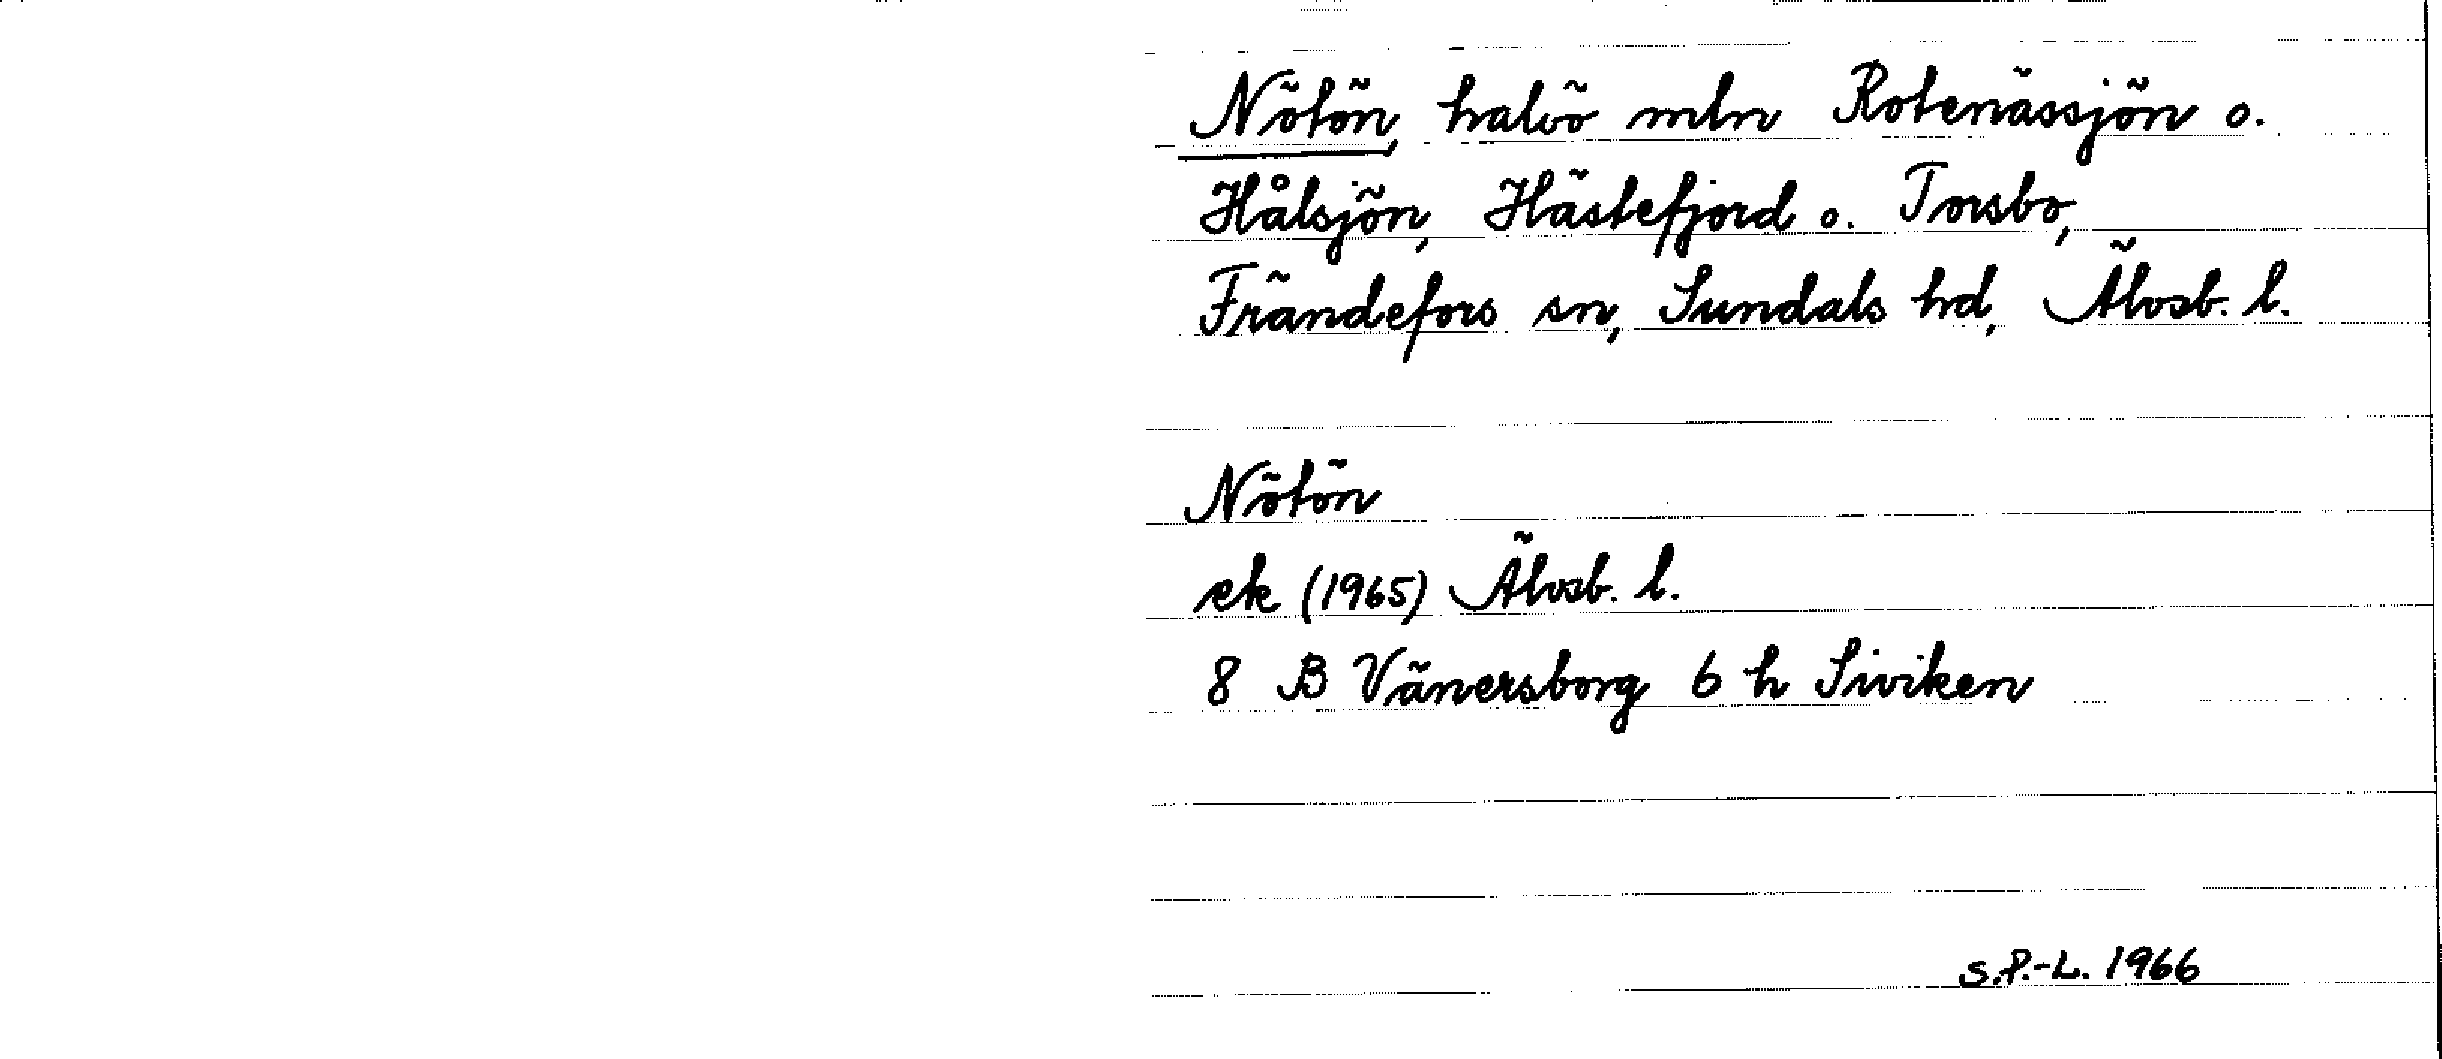 Nötön, halvö mln Rotenässjön o.
Hålsjön, Hästefjord o. Torsbo,
Frändefors sn, Sundals hd, Älvsb. l.
Nötön
ek (1965) Älvsb. l.
8 B Vänersborg 6 h Siviken
S.P.-L. 1966